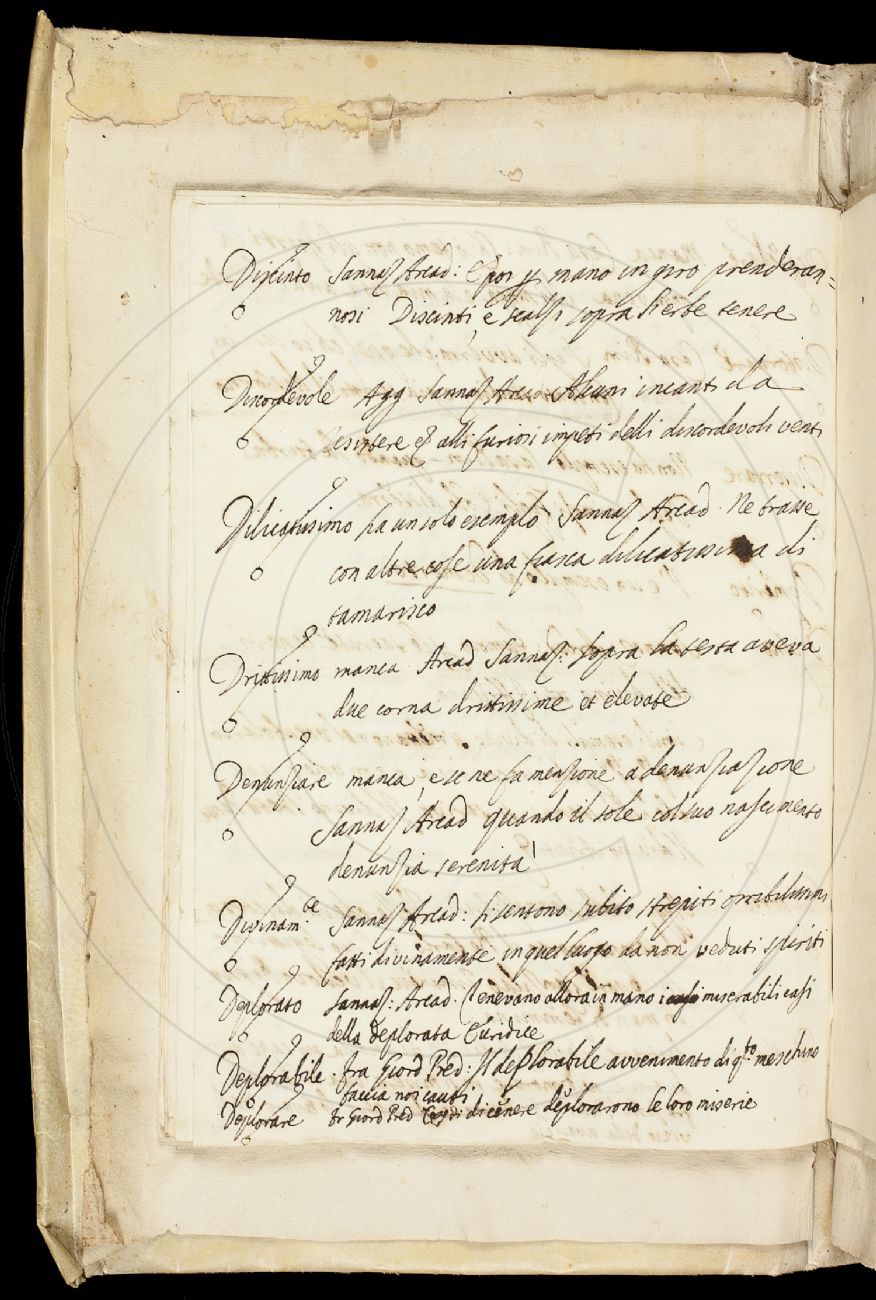 Discinto Sannaz Arcad: E poi p mano in giro prenderan=
nosi Discinti, e scalzi sopra l'erbe tenere
Discordevole Agg Sannaz Arcad Alcuni incanti da
resistere alli furiosi impeti delli discordevoli venti
Dilicatissimo ha un solo esemplo Sannaz Arcad. Ne trasse
con altre cose una fiasca dilicatissima di
tamarisco
Drittissimo manca Arcad Sannaz: sopra la testa aveva
due corna drittissime et elevate
Denunziare manca, e se ne fa menzione a denunziazione
Sannaz Arcad quando il sole col suo nascimento
denunzia serenita'
Divinam.te Sannaz Arcad: si sentono subito strepiti orribilissimi
fatti divinamente in quel luogo da non veduti spiriti
Deplorato Sannaz: Arcad. tenevano allora in mano i casi miserabili casi
della deplorata Euridice
Deplorabile. fra Giord Pred: Il deplorabile avvenimento di q.to meschino
faccia noi cauti
Deplorare fr Giord Pred di cenere deplorarono le loro miserie